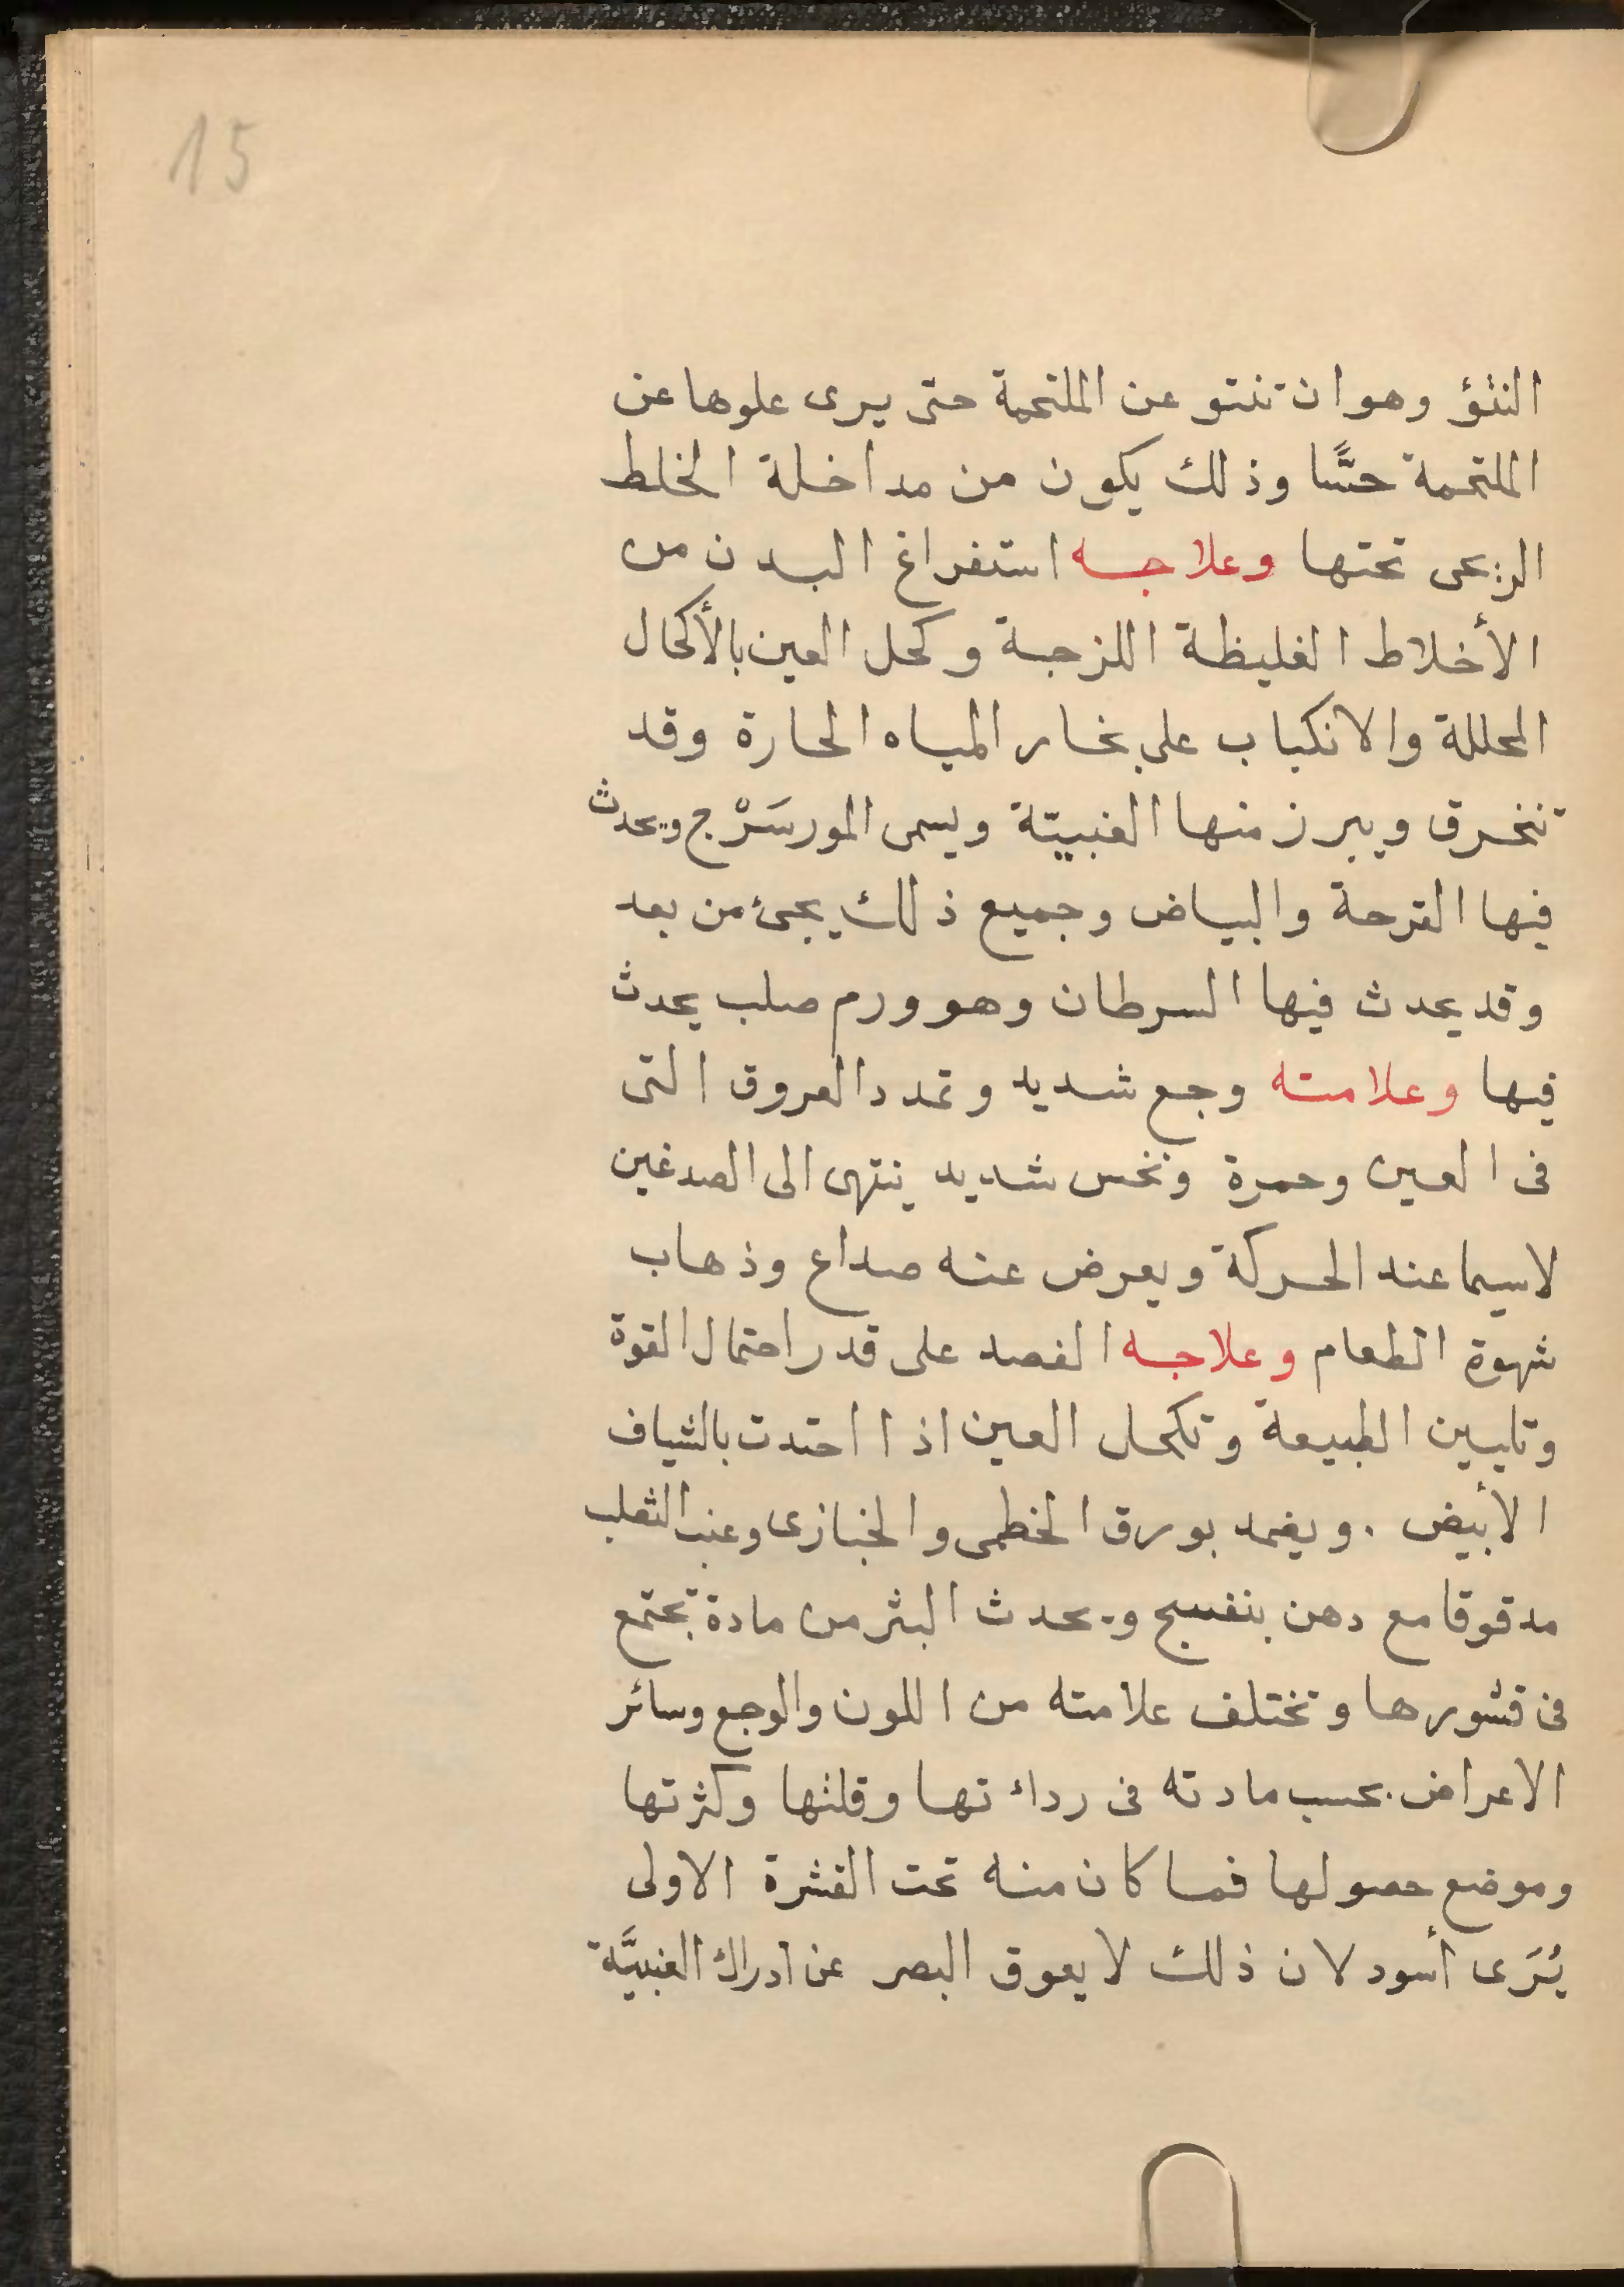 15
النتؤ وهو ان تنتو عن الملتحمة حتى يرى علوها عن
الملتحمة حسًّا وذلك يكون من مداخلة الخلط
الريحى تحتها وعلاجه استفراغ البدن من
الأخلاط الغليظة اللزجة وكحل العين بالأكحال
المحللة والانكباب على بخار المياه الحارة وقد
تنخرق ويبرز منها العنبيّة ويسمى المورسَرْج ويحدث
فيها القرحة والبياض وجميع ذلك يجئ من بعد
وقد يحدث فيها السرطان وهو ورم صلب يحدث
فيها وعلامته وجع شديد وتمدد العروق التى
فى العين وحمرة ونخس شديد ينتهى الى الصدغين
لاسيما عند الحركة ويعرض عنه صداع وذهاب
شهوة الطعام وعلاجه الفصد على قدر احتمال القوة
وتليين الطبيعة وتكحل العين اذا احتدت بالشياف
الأبيض . ويضمد بورق الخطمى والخبازى وعنب الثعلب
مدقوقا مع دهن بنفسج ويحدث البثر من مادة تجتمع
فى قشورها وتختلف علامته من اللون والوجع وسائر
الاعراض بحسب مادته فى رداءتها وقلتها وكثرتها
وموضع حصولها فما كان منه تحت القشرة الاولى
يُرَى أسود لان ذلك لا يعوق البصر عن ادراك العنبيَّة